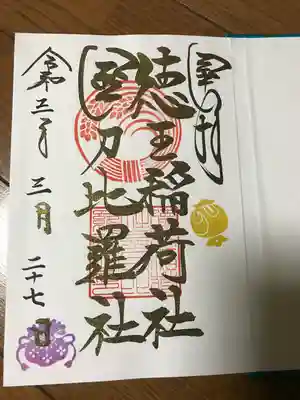 徳王稲荷社
金刀比羅社
令和三年三月二十七日